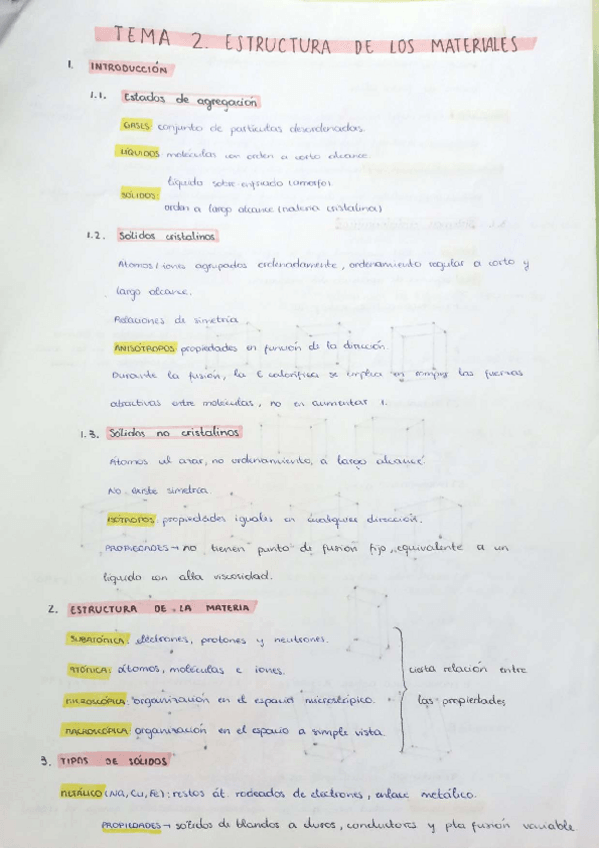 TEMA 2. ESTRUCTURA DE LOS MATERIALES
1. INTRODUCCIÓN
1.1. Estados de agregación
GASES: conjunto de partículas desordenadas.
LÍQUIDOS: moléculas con orden a corto alcance.
líquido sobre enfriado (amorfo).
SÓLIDOS:
orden a largo alcance (materia cristalina)
1.2. Sólidos cristalinos
Átomos/iones agrupados ordenadamente, ordenamiento regular a corto y
largo alcance.
Relaciones de simetría
ANISÓTROPOS: propiedades en función de la dirección.
Durante la fusión, la E calorífica se emplea en romper las fuerzas
atractivas entre moléculas, no en aumentar
1.3. Sólidos no cristalinos
Átomos al azar, no ordenamiento, a largo alcance.
No existe simetría.
ISÓTROPOS: propiedades iguales en cualquier dirección.
PROPIEDADES → no tienen punto de fusión fijo, equivalente a un
líquido con alta viscosidad.
2. ESTRUCTURA DE LA MATERIA
SUBATÓMICA: electrones, protones y neutrones.
ATÓMICA: átomos, moléculas e iones.
MICROSCÓPICA: organización en el espacio microscópico.
MACROSCÓPICA: organización en el espacio a simple vista.
cierta relación entre
las propiedades
3. TIPOS DE SÓLIDOS
METÁLICO (Na, Cu, Fe): restos át. rodeados de electrones, enlace metálico.
PROPIEDADES → sólidos de blandos a duros, conductores y pto fusión variable.